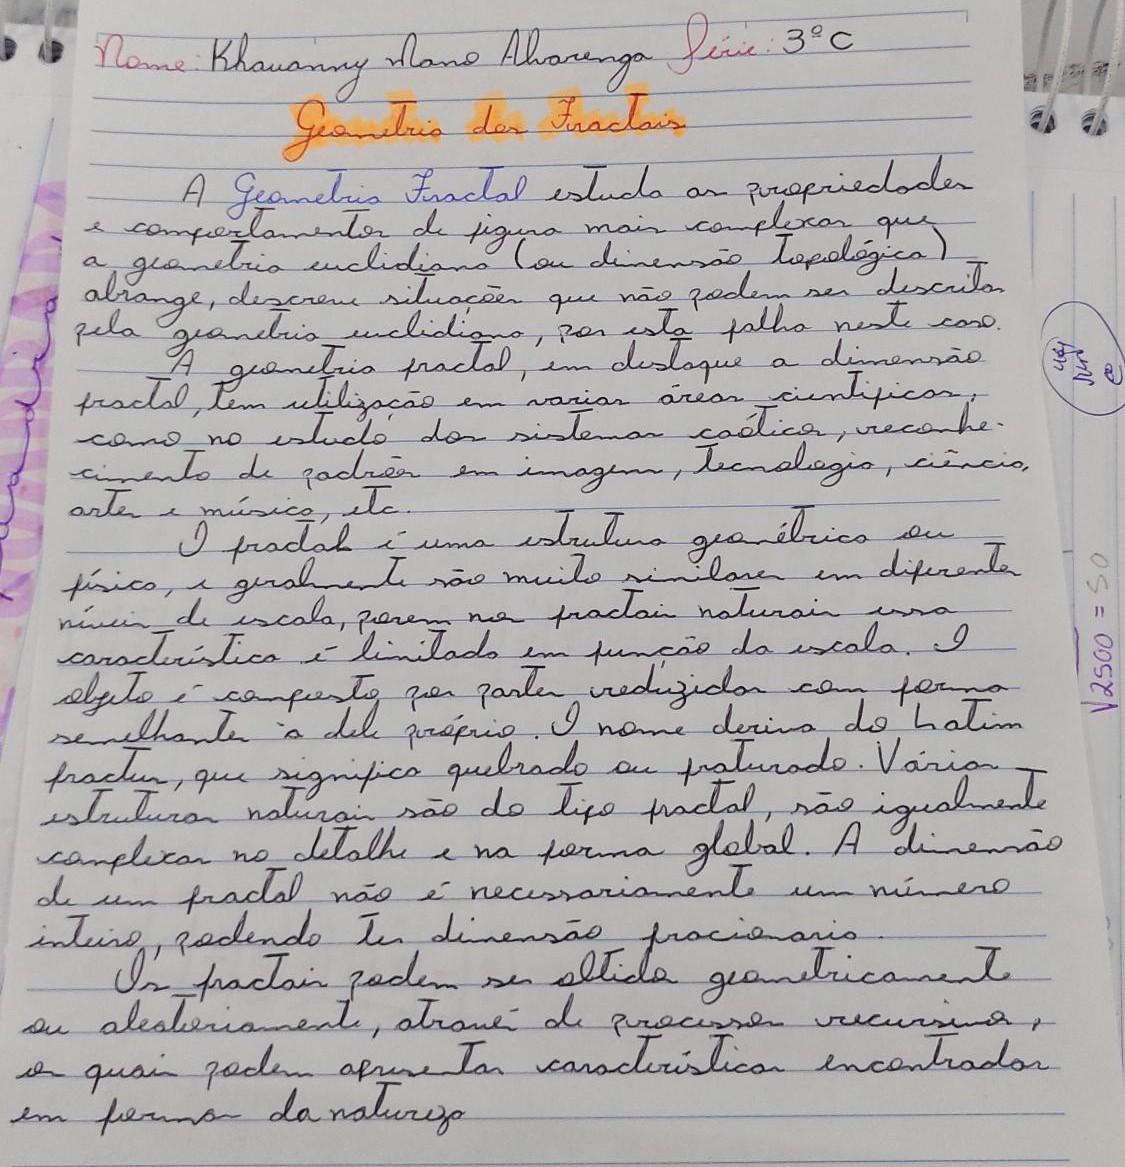 Nome: Khauanny Mano Alvarenga Série: 3º C
Geometria dos Fractais
A Geometria Fractal estuda as propriedades
e comportamentos de figura mais complexas que
a geometria euclidiana (ou dimensão topológica)
abrange, descreve situações que não podem ser descritas
pela geometria euclidiana, por esta falha neste caso.
A geometria fractal, em destaque a dimensão
fractal, tem utilização em varias áreas cientificas,
como no estudo dos sistemas caóticos, reconhe-
cimento de padrões em imagem, tecnologia, ciência,
artes e música, etc.
O fractal é uma estrutura geométrica ou
física, e geralmente são muito similares em diferentes
níveis de escala, porem nos fractais naturais essa
característica é limitada em função da escala. O
objeto é composto por partes reduzidas com forma
semelhantes à dele próprio. O nome deriva do Latim
fractus, que significa quebrado ou fraturado. Várias
estruturas naturais são do tipo fractal, são igualmente
complexas no detalhe e na forma global. A dimensão
de um fractal não é necessariamente um número
inteiro, podendo ter dimensão fracionaria.
Os fractais podem ser obtida geometricamente
ou aleatoriamente, através de processos recursivos,
os quais podem apresentar características encontradas
em formas da natureza
√2500 = 50